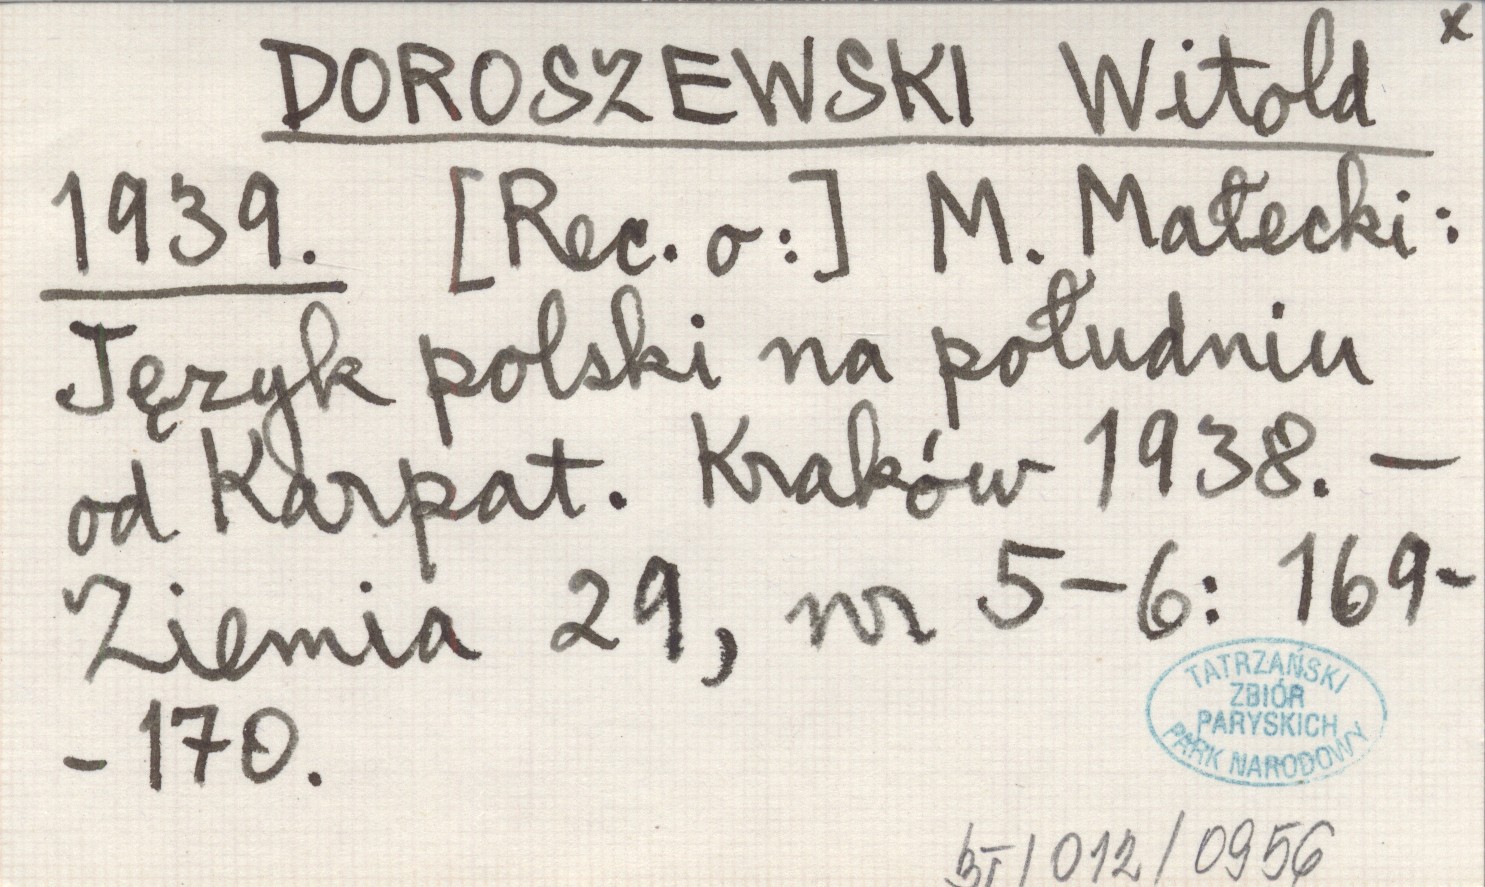 x
DOROSZEWSKI Witold
1939. [Rec. o:] M. Małecki:
Język polski na południu
od Karpat. Kraków 1938. —
Ziemia 29, nr 5-6: 169-
-170.
TATRZAŃSKI
ZBIÓR
PARYSKICH
PARK NARODOWY
BT/012/0956